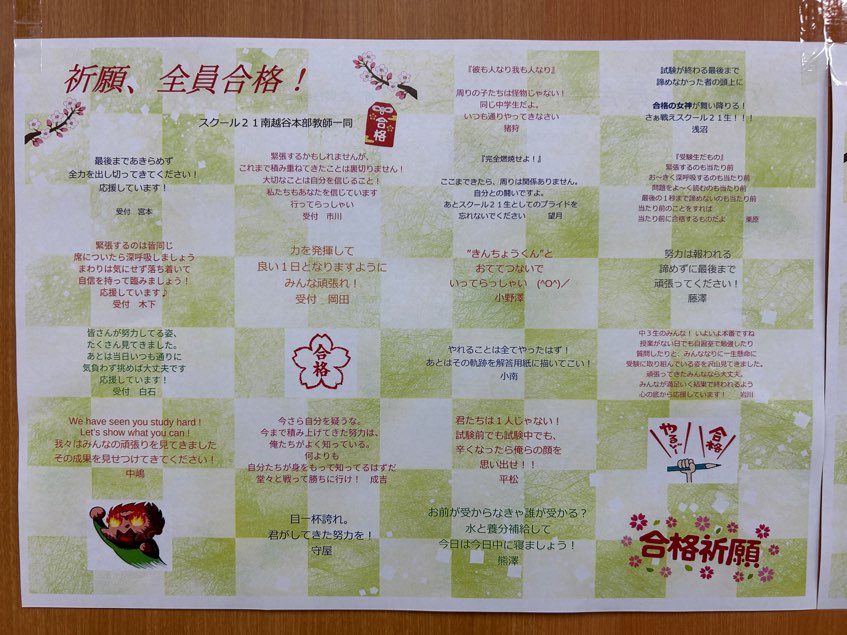 祈願、全員合格！
スクール２１南越谷本部教師一同
合格
最後まであきらめず
全力を出し切ってきてください！
応援しています！
受付　宮本
緊張するかもしれませんが、
これまで積み重ねてきたことは裏切りません！
大切なことは自分を信じること！
私たちもあなたを信じています
行ってらっしゃい
受付　市川
『彼も人なり我も人なり』
周りの子たちは怪物じゃない！
同じ中学生だよ。
いつも通りやってきなさい
猪狩
試験が終わる最後まで
諦めなかった者の頭上に
合格の女神が舞い降りる！
さぁ戦えスクール２１生！！！
浅沼
『完全燃焼せよ！』
ここまできたら、周りは関係ありません。
自分との闘いですよ。
あとスクール２１生としてのプライドを
忘れないでください　　望月
『受験生だもの』
緊張するのも当たり前
お～きく深呼吸するのも当たり前
問題をよ～く読むのも当たり前
最後の１秒まで諦めないのも当たり前
当たり前のことをすれば
当たり前に合格するものだよ　　栗原
緊張するのは皆同じ
席についたら深呼吸しましょう
まわりは気にせず落ち着いて
自信を持って臨みましょう！
応援しています♪
受付　木下
力を発揮して
良い１日となりますように
みんな頑張れ！
受付　岡田
"きんちょうくん"と
おててつないで
いってらっしゃい　(^O^)／
小野澤
努力は報われる
諦めずに最後まで
頑張ってください！
藤澤
皆さんが努力してる姿、
たくさん見てきました。
あとは当日いつも通りに
気負わず挑めば大丈夫です
応援しています！
受付　白石
合格
やれることは全てやったはず！
あとはその軌跡を解答用紙に描いてこい！
小南
中３生のみんな！いよいよ本番ですね
授業がない日でも自習室で勉強したり
質問したりと、みんななりに一生懸命に
受験に取り組んでいる姿を沢山見てきました。
頑張ってきたみんななら大丈夫。
みんなが満足いく結果で終われるよう
心の底から応援しています！　　岩川
We have seen you study hard !
Let's show what you can !
我々はみんなの頑張りを見てきました
その成果を見せつけてきてください！
中嶋
今さら自分を疑うな。
今まで積み上げてきた努力は、
俺たちがよく知っている。
何よりも
自分たちが身をもって知ってるはずだ
堂々と戦って勝ちに行け！　成吉
君たちは１人じゃない！
試験前でも試験中でも、
辛くなったら俺らの顔を
思い出せ！！
平松
やるぞ～
合格
目一杯誇れ。
君がしてきた努力を！
守屋
お前が受からなきゃ誰が受かる？
水と養分補給して
今日は今日中に寝ましょう！
熊澤
合格祈願